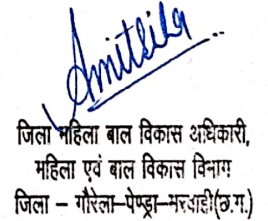 जिला महिला बाल विकास अधिकारी,
महिला एवं बाल विकास विभाग
जिला – गौरेला–पेण्ड्रा–मरवाही(छ.ग.)